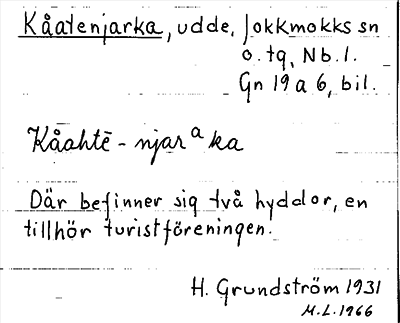 Kåatenjarka, udde, Jokkmokks sn
o. tg, Nb. l.
Gn 19 a 6, bil.
Kåahtē - njarᵃka
Där befinner sig två hyddor, en
tillhör turistföreningen.
H. Grundström 1931
M.L. 1966